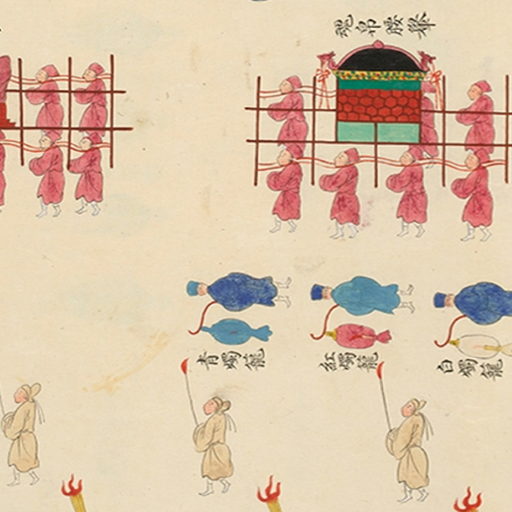 魂帛腰轝
青燭籠
紅燭籠
白燭籠